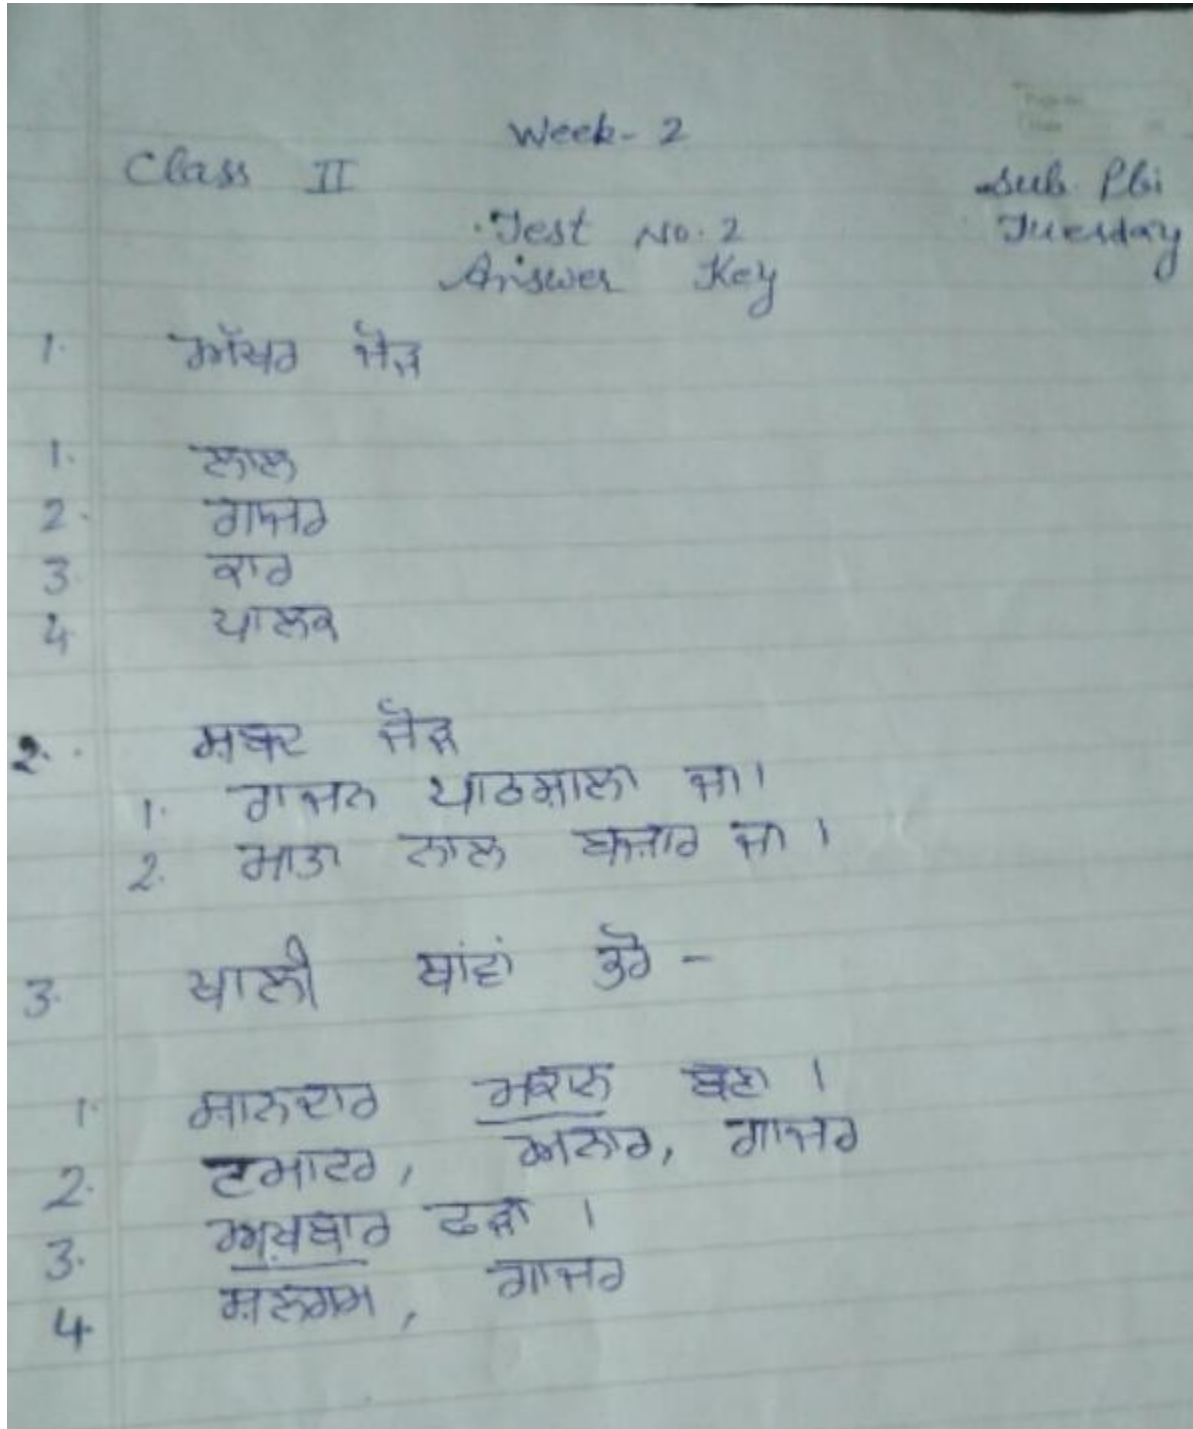 Week - 2
Class II
Sub. Pbi
Test No. 2
Tuesday
Answer Key
1. ਅੱਖਰ ਜੋੜ
1. ਲਾਲ
2. ਗਾਜਰ
3 ਕਾਰ
4 ਪਾਲਕ
2. ਸ਼ਬਦ ਜੋੜ
1. ਰਾਜਨ ਪਾਠਸ਼ਾਲਾ ਜਾ।
2. ਮਾਤਾ ਨਾਲ ਬਜ਼ਾਰ ਜਾ।
3. ਖਾਲੀ ਥਾਂਵਾਂ ਭਰੋ -
1. ਸ਼ਾਨਦਾਰ ਮਕਾਨ ਬਣਾ।
2. ਟਮਾਟਰ, ਅਨਾਰ, ਗਾਜਰ
3. ਅਖ਼ਬਾਰ ਫੜਾ।
4. ਸ਼ਲਗਮ, ਗਾਜਰ